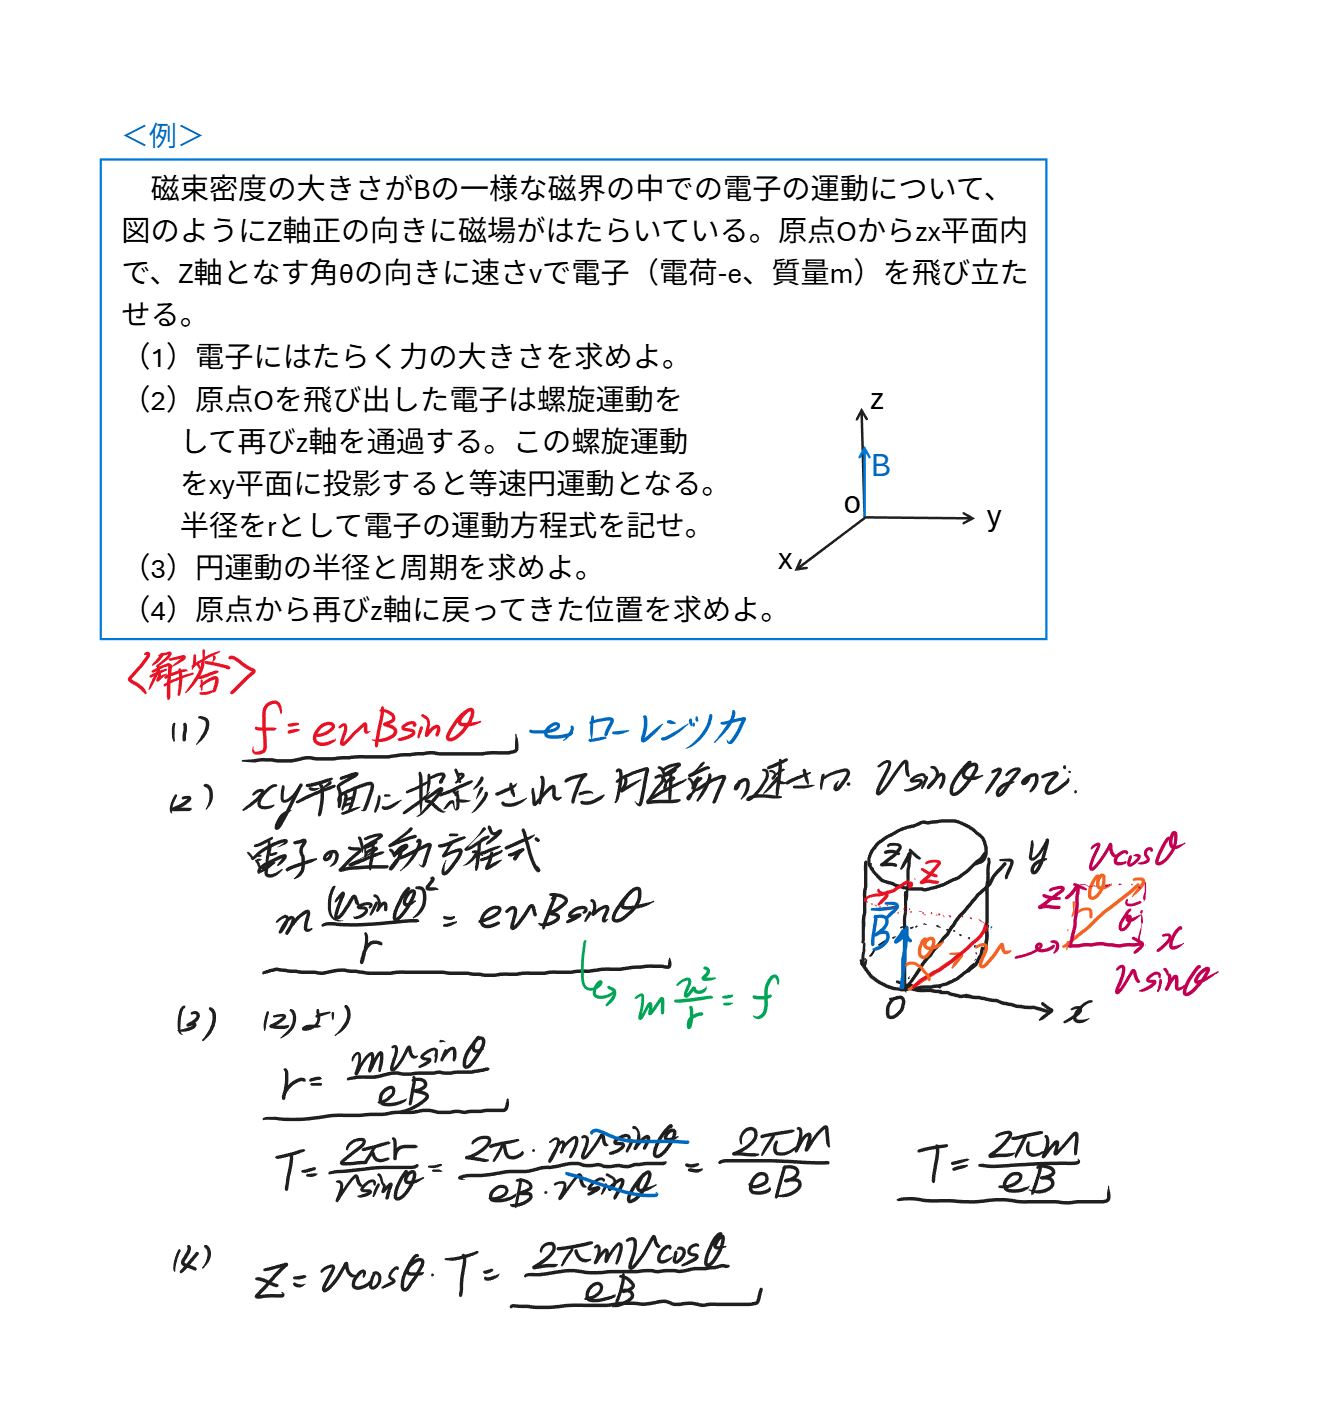 ＜例＞
磁束密度の大きさがBの一様な磁界の中での電子の運動について、
図のようにZ軸正の向きに磁場がはたらいている。原点Oからzx平面内
で、Z軸となす角θの向きに速さvで電子（電荷-e、質量m）を飛び立た
せる。
（1）電子にはたらく力の大きさを求めよ。
（2）原点Oを飛び出した電子は螺旋運動を
して再びz軸を通過する。この螺旋運動
をxy平面に投影すると等速円運動となる。
半径をrとして電子の運動方程式を記せ。
（3）円運動の半径と周期を求めよ。
（4）原点から再びz軸に戻ってきた位置を求めよ。
z
B
o
y
x
〈解答〉
(1) f = evBsinθ ← ローレンツ力
(2) xy平面に投影された円運動の速さは vsinθなので.
電子の運動方程式
m (vsinθ)²/r = evBsinθ
→ m v²/r = f
z
z
y
B
θ
v
O
x
vcosθ
z
θ
θ
x
vsinθ
(3) (2)より
r = mvsinθ/eB
T = 2πr/vsinθ = 2π・mvsinθ/eB・vsinθ = 2πm/eB T = 2πm/eB
(4) z = vcosθ・T = 2πmvcosθ/eB